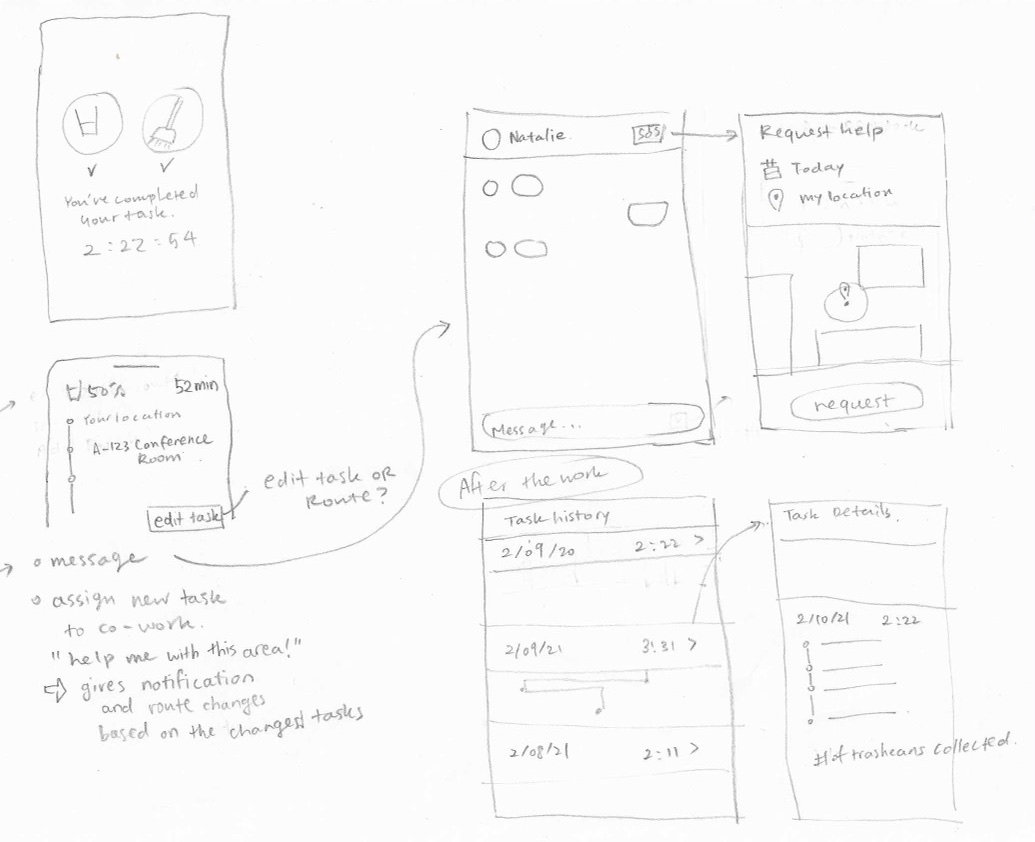 You've completed
your task.
2:22:54
50%
52min
Your location
A-123 Conference
Room
edit task
edit task OR
Route?
message
assign new task
to co-work.
"help me with this area!"
gives notification
and route changes
based on the changest tasks
Natalie
SOS
Message...
Request help
Today
my location
request
After the work
Task history
2/09/20
2:22 >
2/09/21
3:31 >
2/08/21
2:11 >
Task Details.
2/10/21
2:22
# of trashcans collected.